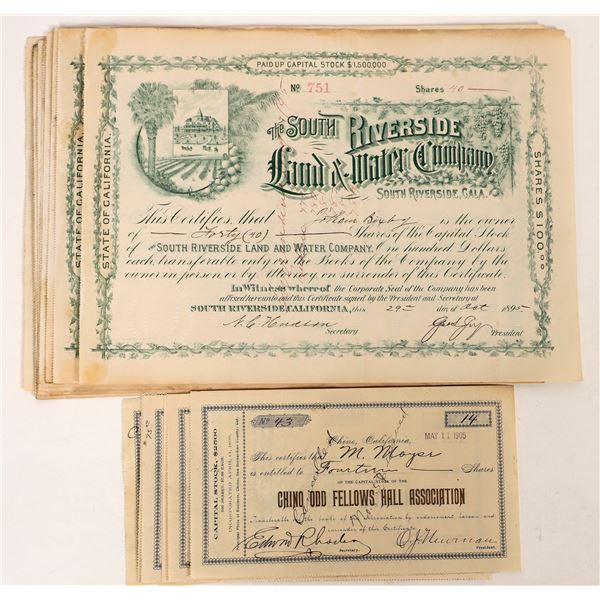 PAID UP CAPITAL STOCK $1,500,000
No 751 Shares 40
STATE OF CALIFORNIA.
STATE OF CALIFORNIA.
The SOUTH RIVERSIDE
Land & Water Company
SOUTH RIVERSIDE, CALA.
SHARES $100.00
This Certifies, that Bixby is the owner
of Forty (40) Shares of the Capital Stock
of THE SOUTH RIVERSIDE LAND AND WATER COMPANY. One Hundred Dollars
each, transferable only on the Books of the Company by the
owner in person, or by Attorney on surrender of this Certificate.
In Witness whereof the Corporate Seal of the Company has been
affixed hereunto and this Certificate signed by the President and Secretary at
SOUTH RIVERSIDE, CALIFORNIA, this 29th day of Oct 1895
Secretary President
No 43 14
Chino, California, MAY 11 1905
This certifies that M. Moyse
is entitled to Fourteen Shares
OF THE CAPITAL STOCK OF THE
CHINO ODD FELLOWS HALL ASSOCIATION
Transferable on the books of the Association by endorsement hereon and
surrender of this Certificate.
Edward Rhodes O. J. Newman
Secretary. President.
CAPITAL STOCK, $2,500